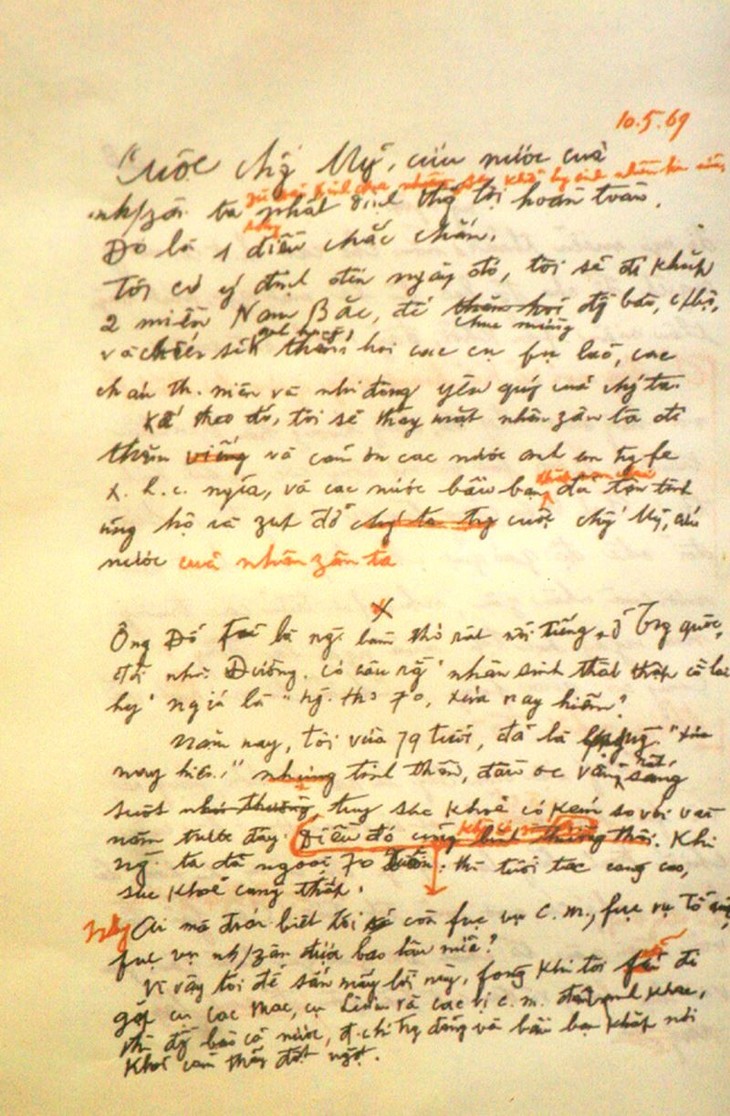 10.5.69
Cuộc chg' Mỹ, cứu nước của
nh/zân ta
dù phải kinh qua nhiều
khổ hy sinh nhiều hơn nữa
phất định thg' lợi hoàn toàn.
Đó là 1 điều chắc chắn.
Tôi có ý định đến ngày đó, tôi sẽ đi khắp
2 miền Nam Bắc, để thăm hỏi đg' bào,
chúc mừng
và chiến sĩ anh hùng, thăm hỏi các cụ fụ lão, các
cháu th. niên và nhi đồng yêu quý của chg' ta.
Kế theo đó, tôi sẽ thay mặt nhân zân ta đi
thăm viếng và cám ơn các nước anh em tg fe
x. h. c. ngĩa, và các nước bầu bạn đã tận tình
ủng hộ và zúp đỡ chg' ta tg cuộc chg' Mỹ, cứu
nước của nhân zân ta
X
Ông Đỗ Fủ là ng. làm thơ rất nổi tiếng, ở Trg quốc,
đời nhà Đường. Có câu rằg "nhân sinh thất thập cổ lai
hy" ngĩa là "ng. thọ 70, xưa nay hiếm".
Năm nay, tôi vừa 79 tuổi, đã là hạng "xưa
nay hiếm" nhưng tinh thần, đầu óc vẫn rất sáng
suốt như thường, tuy sức khoẻ có kém so với vài
năm trước đây. Điều đó cũng bình thường thôi. Khi
ng. ta đã ngoài 70 xuân, thì tuổi tác càng cao,
sức khoẻ càng thấp.
Nhg Ai mà đoán biết tôi sẽ còn fục vụ c.m., fục vụ Tổ quốc,
fục vụ nh/zân được bao lâu nữa?
Vì vậy tôi để sẵn mấy lời này, fòng khi tôi fải đi
gặp cụ Các Mác, cụ Lênin và các vị c.m. đàn anh khác,
thì đg' bào cả nước, đ. chí tg đảng và bầu bạn khắp nơi
khỏi cảm thấy đột ngột.